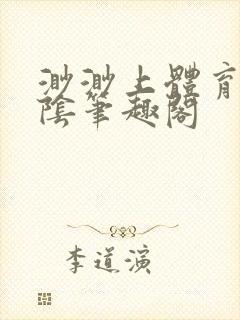 渺渺上體育
陰筆趣閣
李道演